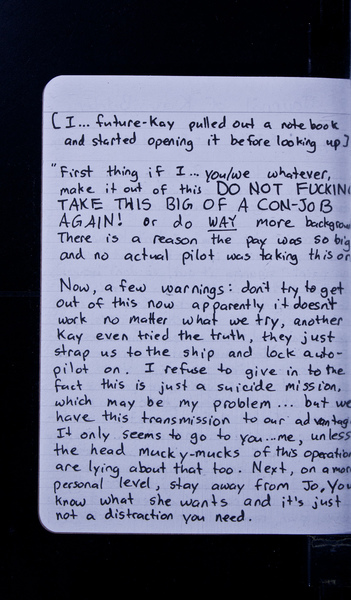 [I... future-Kay pulled out a notebook
and started opening it before looking up]
"First thing if I... you/we whatever,
make it out of this DO NOT FUCKING
TAKE THIS BIG OF A CON-JOB
AGAIN! or do WAY more backgroun
There is a reason the pay was so big
and no actual pilot was taking this on
Now, a few warnings: don't try to get
out of this now apparently it doesn't
work no matter what we try, another
Kay even tried the truth, they just
strap us to the ship and lock auto-
pilot on. I refuse to give in to the
fact this is just a suicide mission,
which may be my problem... but we
have this transmission to our advantag
It only seems to go to you...me, unless
the head mucky-mucks of this operation
are lying about that too. Next, on a more
personal level, stay away from Jo, You
know what she wants and it's just
not a distraction you need.